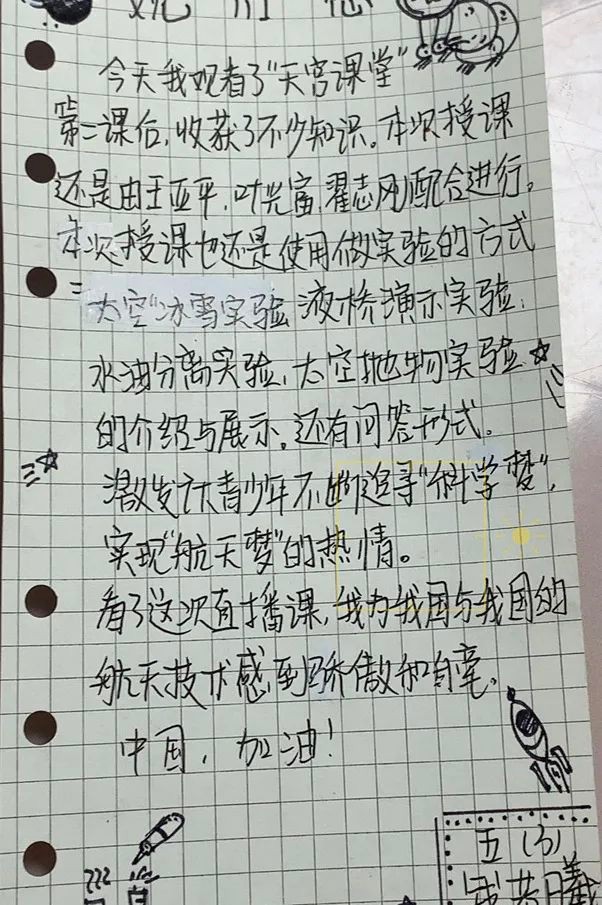 观后感
今天我观看了“天宫课堂”
第二课后,收获了不少知识。本次授课
还是由王亚平,叶光富,翟志刚配合进行。
本次授课也还是使用做实验的方式
=太空“冰雪实验,液桥演示实验,
水油分离实验,太空抛物实验
的介绍与展示。还有问答形式。
激发广大青少年不断追寻“科学梦”,
实现“航天梦”的热情。
看了这次直播课,我为我国与我国的
航天技术感到骄傲和自豪。
中国,加油!
五(3)